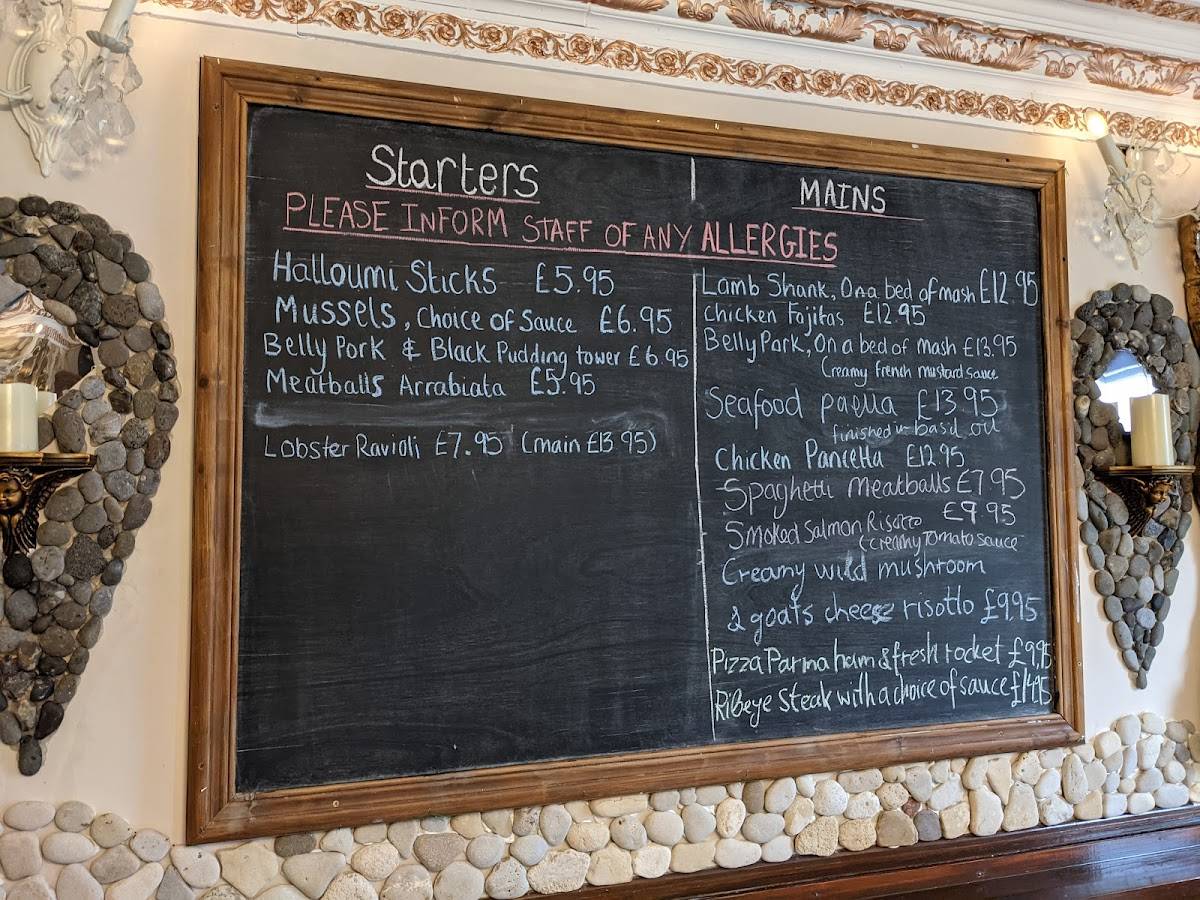 Starters
PLEASE INFORM STAFF OF ANY ALLERGIES
Halloumi Sticks £5.95
Mussels, Choice of Sauce £6.95
Belly Pork & Black Pudding tower £6.95
Meatballs Arrabiata £5.95
Lobster Ravioli £7.95 (main £13.95)
MAINS
Lamb Shank, On a bed of mash £12.95
Chicken Fajitas £12.95
Belly Pork, On a bed of mash £13.95
Creamy french mustard sauce
Seafood paella £13.95
finished in basil oil
Chicken Pancetta £12.95
Spaghetti Meatballs £7.95
Smoked Salmon Risotto £9.95
(creamy Tomato sauce
Creamy wild mushroom
& goats cheese risotto £9.95
Pizza Parma ham & fresh rocket £9.95
Ribeye Steak with a choice of sauce £14.95